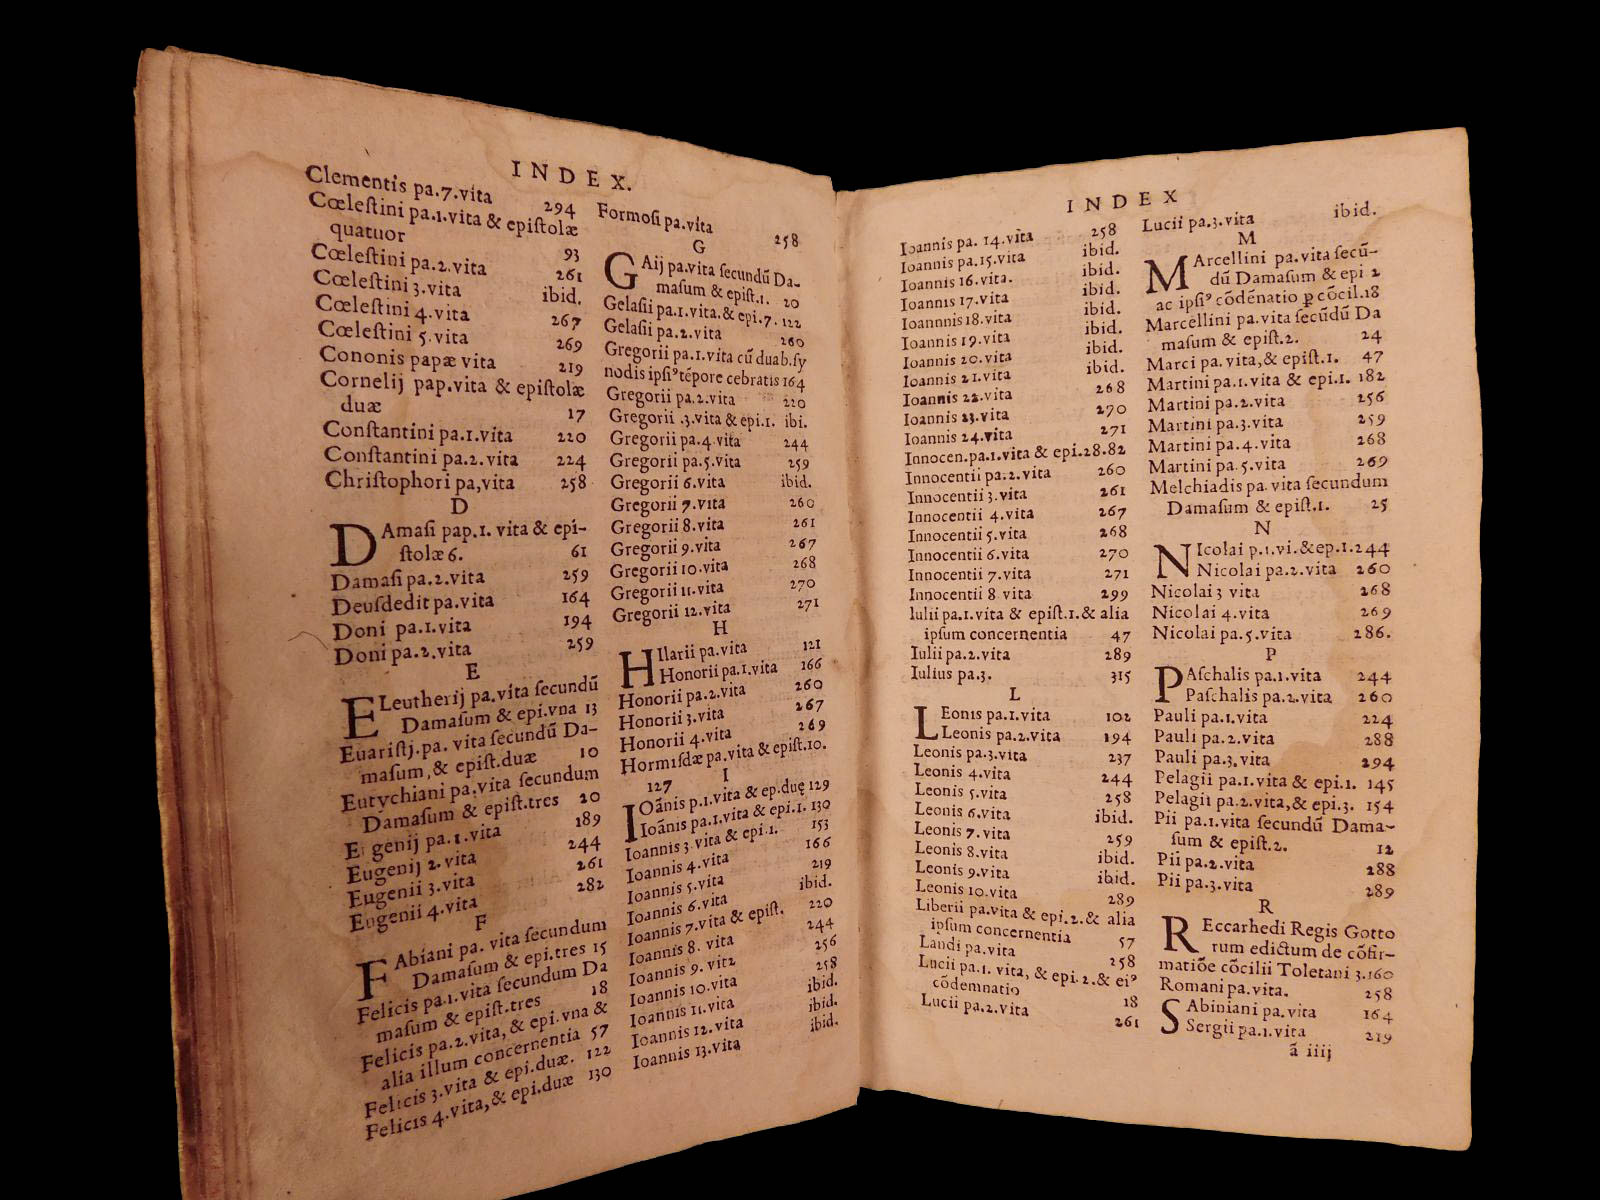 INDEX.
Clementis pa.7.vita 294
Cœleſtini pa.1.vita & epiſtolæ
quatuor 93
Cœleſtini pa.2.vita 261
Cœleſtini 3.vita ibid.
Cœleſtini 4.vita 267
Cœleſtini 5.vita 269
Cononis papæ vita 219
Cornelij pap.vita & epiſtolæ
duæ 17
Conſtantini pa.1.vita 220
Conſtantini pa.2.vita 224
Chriſtophori pa,vita 258
D
DAmaſi pap.1. vita & epi-
ſtolæ 6. 61
Damaſi pa.2.vita 259
Deuſdedit pa.vita 164
Doni pa.1.vita 194
Doni pa.2.vita 259
E
ELeutherij pa.vita ſecundū
Damaſum & epi.vna 13
Euariſtj.pa. vita ſecundū Da-
maſum,& epiſt.duæ 10
Eutychiani pa.vita ſecundum
Damaſum & epiſt.tres 20
Eugenij pa.1.vita 189
Eugenij 2.vita 244
Eugenii 3.vita 261
Eugenii 4.vita 282
F
FAbiani pa. vita ſecundum
Damaſum & epi.tres 15
Felicis pa.1.vita ſecundum Da
maſum & epiſt.tres 18
Felicis pa.2.vita,& epi.vna &
alia illum concernentia 57
Felicis 3.vita & epi.duæ. 122
Felicis 4.vita,& epi.duæ 130
Formoſi pa.vita 258
G
GAij pa.vita ſecundū Da-
maſum & epiſt.1. 20
Gelaſii pa.1.vita.& epi.7. 122
Gelaſii pa.2.vita 260
Gregorii pa.1.vita cū duab.ſy
nodis ipſiꝰ tēpore cebratis 164
Gregorii pa.2.vita 220
Gregorii .3.vita & epi.1. ibi.
Gregorii pa.4 vita 244
Gregorii pa.5.vita 259
Gregorii 6.vita ibid.
Gregorii 7.vita 260
Gregorii 8.vita 261
Gregorii 9.vita 267
Gregorii 10.vita 268
Gregorii 11.vita 270
Gregorii 12.vita 271
H
HIlarii pa.vita 121
Honorii pa.1.vita 166
Honorii pa.2.vita 260
Honorii 3.vita 267
Honorii 4.vita 269
Hormiſdæ pa.vita & epiſt.10.
127
I
IOānis p.1.vita & ep.duę 129
Ioānis pa.1.vita & epi.1. 130
Ioannis 3 vita & epi.1. 153
Ioannis 4.vita 166
Ioannis 5.vita 219
Ioannis 6.vita ibid.
Ioannis 7.vita & epiſt. 220
Ioannis 8. vita 244
Ioannis 9. vita 256
Ioannis 10.vita 258
Ioannis 11.vita ibid.
Ioannis 12.vita ibid.
Ioannis 13.vita ibid.
INDEX
Ioannis pa. 14.vita 258
Ioannis pa.15.vita ibid.
Ioannis 16.vita. ibid.
Ioannis 17.vita ibid.
Ioannnis 18.vita ibid.
Ioannis 19.vita ibid.
Ioannis 20.vita ibid.
Ioannis 21.vita ibid.
Ioannis 22.vita 268
Ioannis 23.vita 270
Ioannis 24.vita 271
Innocen.pa.1.vita & epi.28.82
Innocentii pa.2.vita 260
Innocentii 3.vita 261
Innocentii 4.vita 267
Innocentii 5.vita 268
Innocentii 6.vita 270
Innocentii 7.vita 271
Innocentii 8 vita 299
Iulii pa.1.vita & epiſt.1.& alia
ipſum concernentia 47
Iulii pa.2.vita 289
Iulius pa.3. 315
L
LEonis pa.1.vita 102
Leonis pa.2.vita 194
Leonis pa.3.vita 237
Leonis 4.vita 244
Leonis 5.vita 258
Leonis 6.vita ibid.
Leonis 7.vita 259
Leonis 8.vita ibid.
Leonis 9.vita ibid.
Leonis 10.vita 289
Liberii pa.vita & epi.2.& alia
ipſum concernentia 57
Landi pa.vita 258
Lucii pa.1. vita, & epi.2.& eiꝰ
cōdemnatio 18
Lucii pa.2.vita 261
Lucii pa.3.vita ibid.
M
MArcellini pa.vita ſecū-
dū Damaſum & epi 2
ac ipſiꝰ cōdēnatio ꝑ cōcil.18
Marcellini pa.vita ſecūdū Da
maſum & epiſt.2. 24
Marci pa.vita,& epiſt.1. 47
Martini pa.1.vita & epi.1. 182
Martini pa.2.vita 256
Martini pa.3.vita 259
Martini pa.4.vita 268
Martini pa.5.vita 269
Melchiadis pa.vita ſecundum
Damaſum & epiſt.1. 25
N
NIcolai p.1.vi.&ep.1.244
Nicolai pa.2.vita 260
Nicolai 3 vita 268
Nicolai 4.vita 269
Nicolai pa.5.vita 286.
P
PAſchalis pa.1.vita 244
Paſchalis pa.2.vita 260
Pauli pa.1.vita 224
Pauli pa.2.vita 288
Pauli pa.3.vita 294
Pelagii pa.1.vita & epi.1. 145
Pelagii pa.2.vita,& epi.3. 154
Pii pa.1.vita ſecundū Dama-
ſum & epiſt.2. 12
Pii pa.2.vita 288
Pii pa.3.vita 289
R
REccarhedi Regis Gotto
rum edictum de cōfir-
matiōe cōcilii Toletani 3.160
Romani pa.vita. 258
SAbiniani pa.vita 164
Sergii pa.1.vita 219
ā iiij